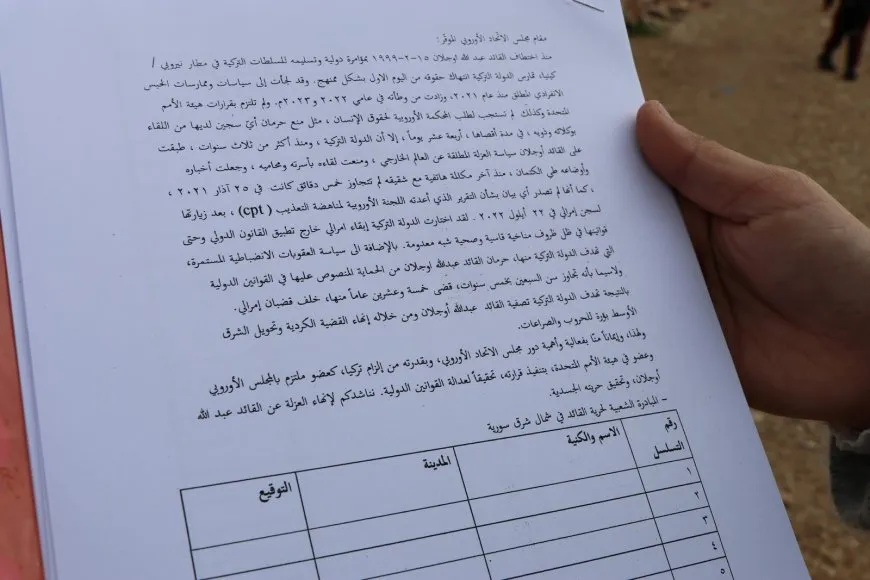 مقام مجلس الاتحاد الأوروبي الموقّر:
منذ اختطاف القائد عبد الله اوجلان ١٥-٢-١٩٩٩ بمؤامرة دولية وتسليمه للسلطات التركية في مطار نيروبي /
كينيا، تمارس الدولة التركية انتهاك حقوقه من اليوم الاول بشكل ممنهج. وقد لجأت إلى سياسات وممارسات الحبس
الانفرادي المطلق منذ عام ٢٠٢١، وزادت من وطأته في عامي ٢٠٢٢ و٢٠٢٣م. ولم تلتزم بقرارات هيئة الأمم
المتحدة وكذلك لم تستجب لطلب المحكمة الأوروبية لحقوق الإنسان ، مثل منع حرمان أيّ سجين لديها من اللقاء
بوكلائه وذويه ، في مدة أقصاها ، أربعة عشر يوماً ، إلا أن الدولة التركية ، ومنذ أكثر من ثلاث سنوات ، طبقت
على القائد أوجلان سياسة العزلة المطلقة عن العالم الخارجي ، ومنعت لقاءه بأسرته ومحاميه ، وجعلت أخباره
وأوضاعه طي الكتمان ، منذ آخر مكالمة هاتفية مع شقيقه لم تتجاوز خمس دقائق كانت في ٢٥ آذار ٢٠٢١ ،
، كما أنها لم تصدر أي بيان بشأن التقرير الذي أعدته اللجنة الأوروبية لمناهضة التعذيب ( cpt) ، بعد زيارتها
لسجن إمرالي في ٢٢ أيلول ٢٠٢٢ . لقد اختارت الدولة التركية إبقاء امرالي خارج تطبيق القانون الدولي وحتى
قوانينها في ظل ظروف مناخية قاسية وصحية شبه معدومة. بالإضافة الى سياسة العقوبات الانضباطية المستمرة،
التي تهدف الدولة التركية منها، حرمان القائد عبدالله اوجلان من الحماية المنصوص عليها في القوانين الدولية
ولاسيما بأنه تجاوز سن السبعين بخمس سنوات، قضى خمسة وعشرين عاماً منها، خلف قضبان إمرالي.
بالنتيجة تهدف الدولة التركية تصفية القائد عبدالله أوجلان ومن خلاله إنهاء القضية الكردية وتحويل الشرق
الأوسط بؤرة للحروب والصراعات.
ولهذا، وإيماناً منّا بفعالية وأهمية دور مجلس الاتحاد الأوروبي، وبقدرته من إلزام تركيا، كعضو ملتزم بالمجلس الأوروبي
وعضو في هيئة الأمم المتحدة، بتنفيذ قراراته، تحقيقاً لعدالة القوانين الدولية. نناشدكم لإنهاء العزلة عن القائد عبد الله
أوجلان، وتحقيق حريته الجسدية.
- المبادرة الشعبية لحرية القائد في شمال شرق سورية
رقم التسلسل الاسم والكنية المدينة التوقيع
١
٢
٣
٤
٥